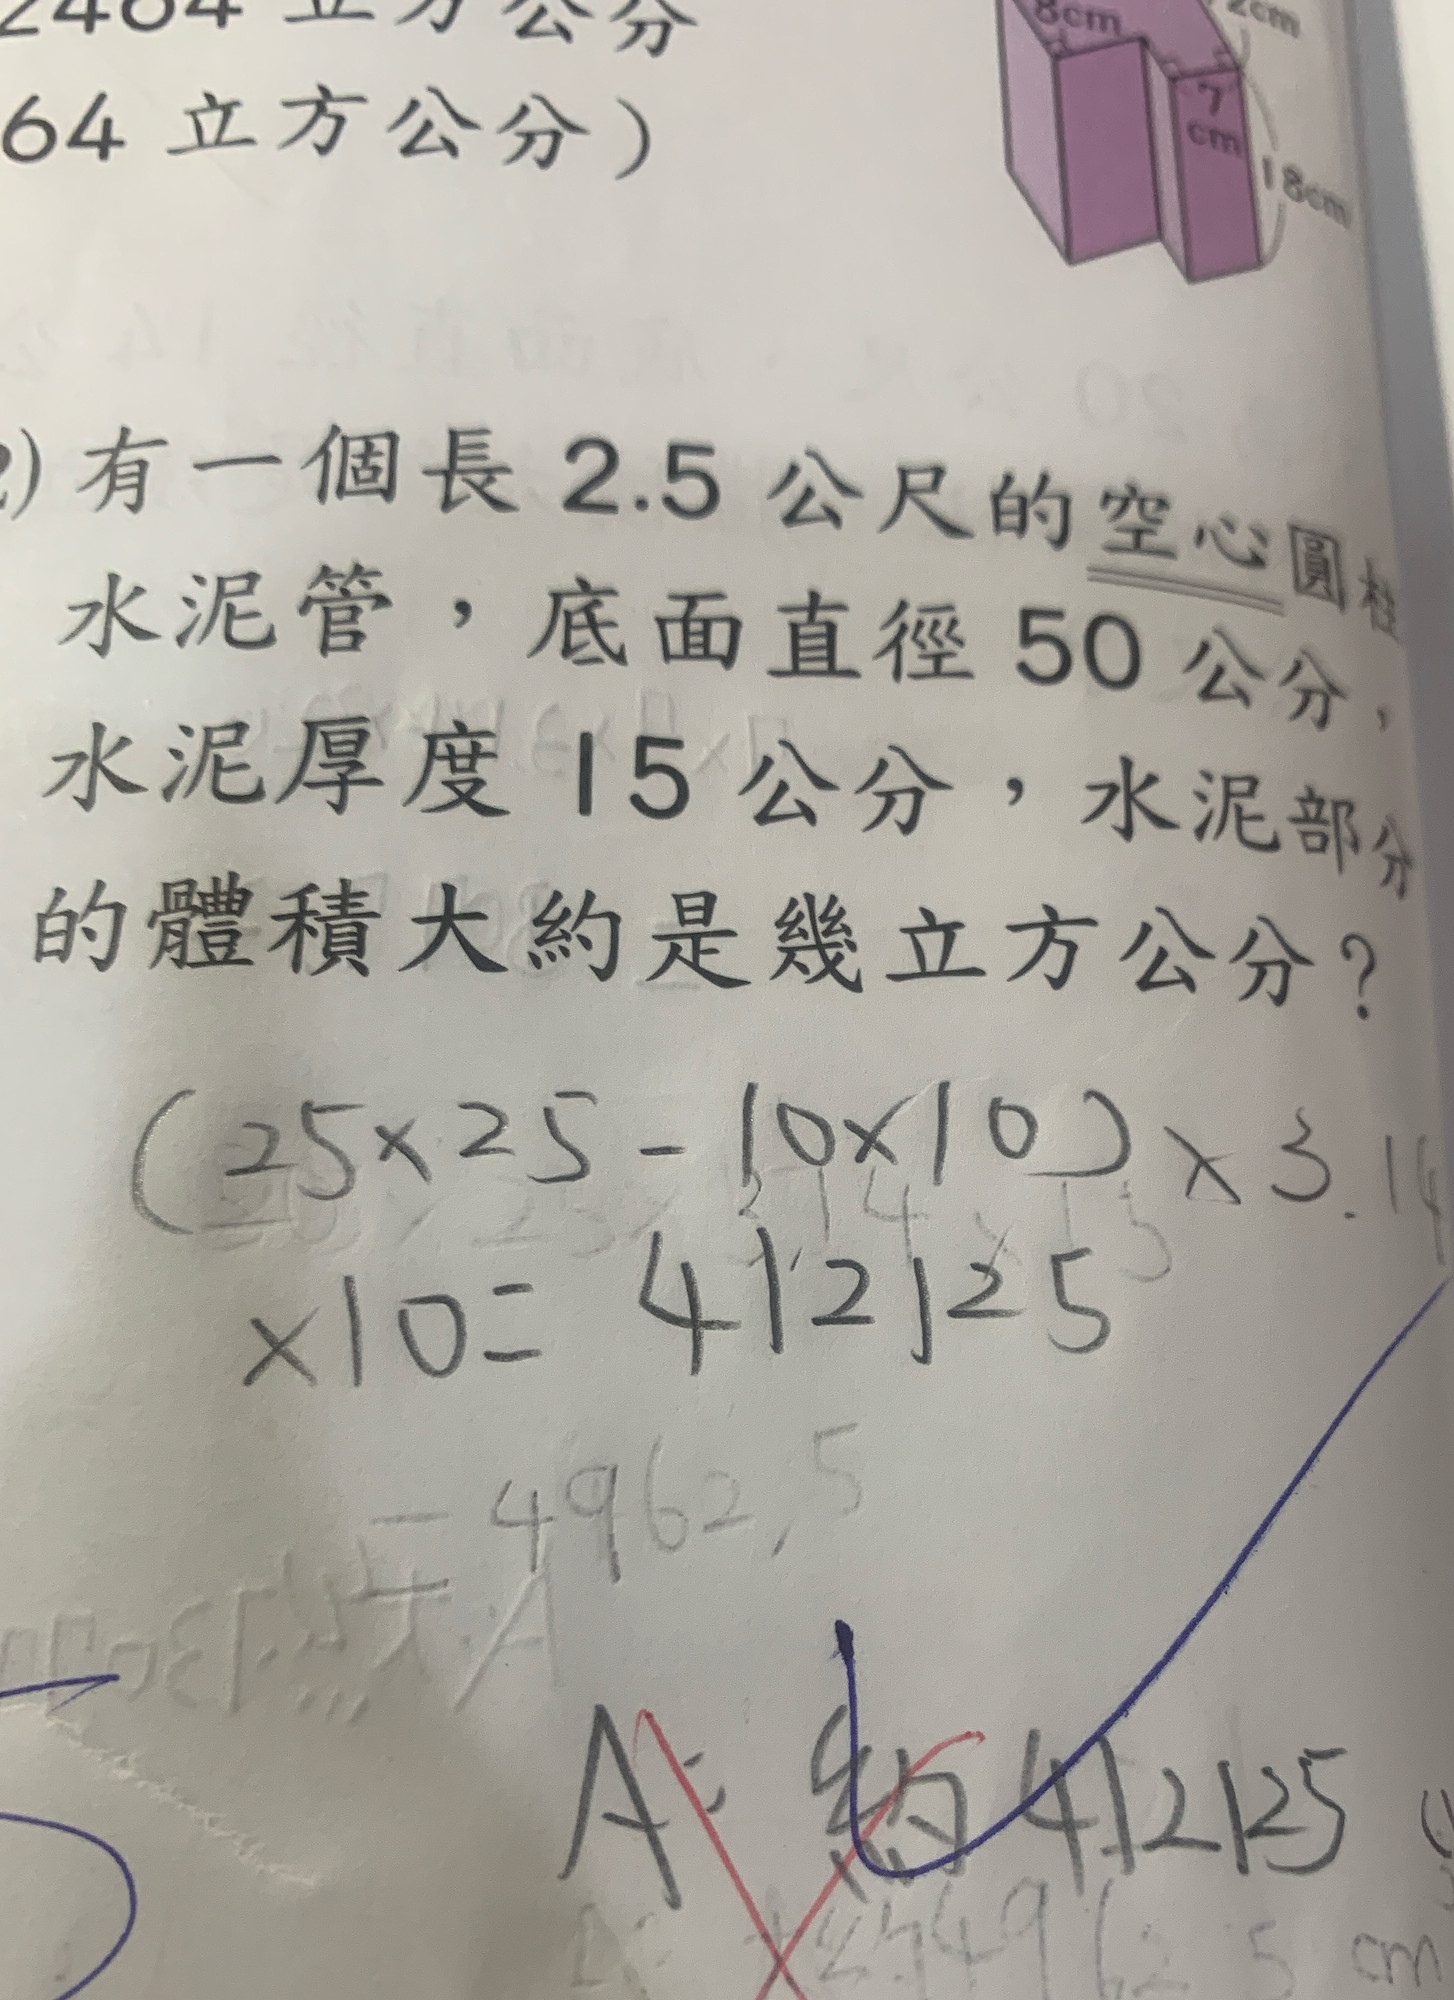 2464 立方公分
64 立方公分）
8cm
2cm
7
cm
18cm
2) 有一個長 2.5 公尺的空心圓柱
水泥管，底面直徑 50 公分，
水泥厚度 15 公分，水泥部分
的體積大約是幾立方公分？
(25×25-10×10)×3.14
×10=412125
=4962.5
A: 約412125
4962.5 cm